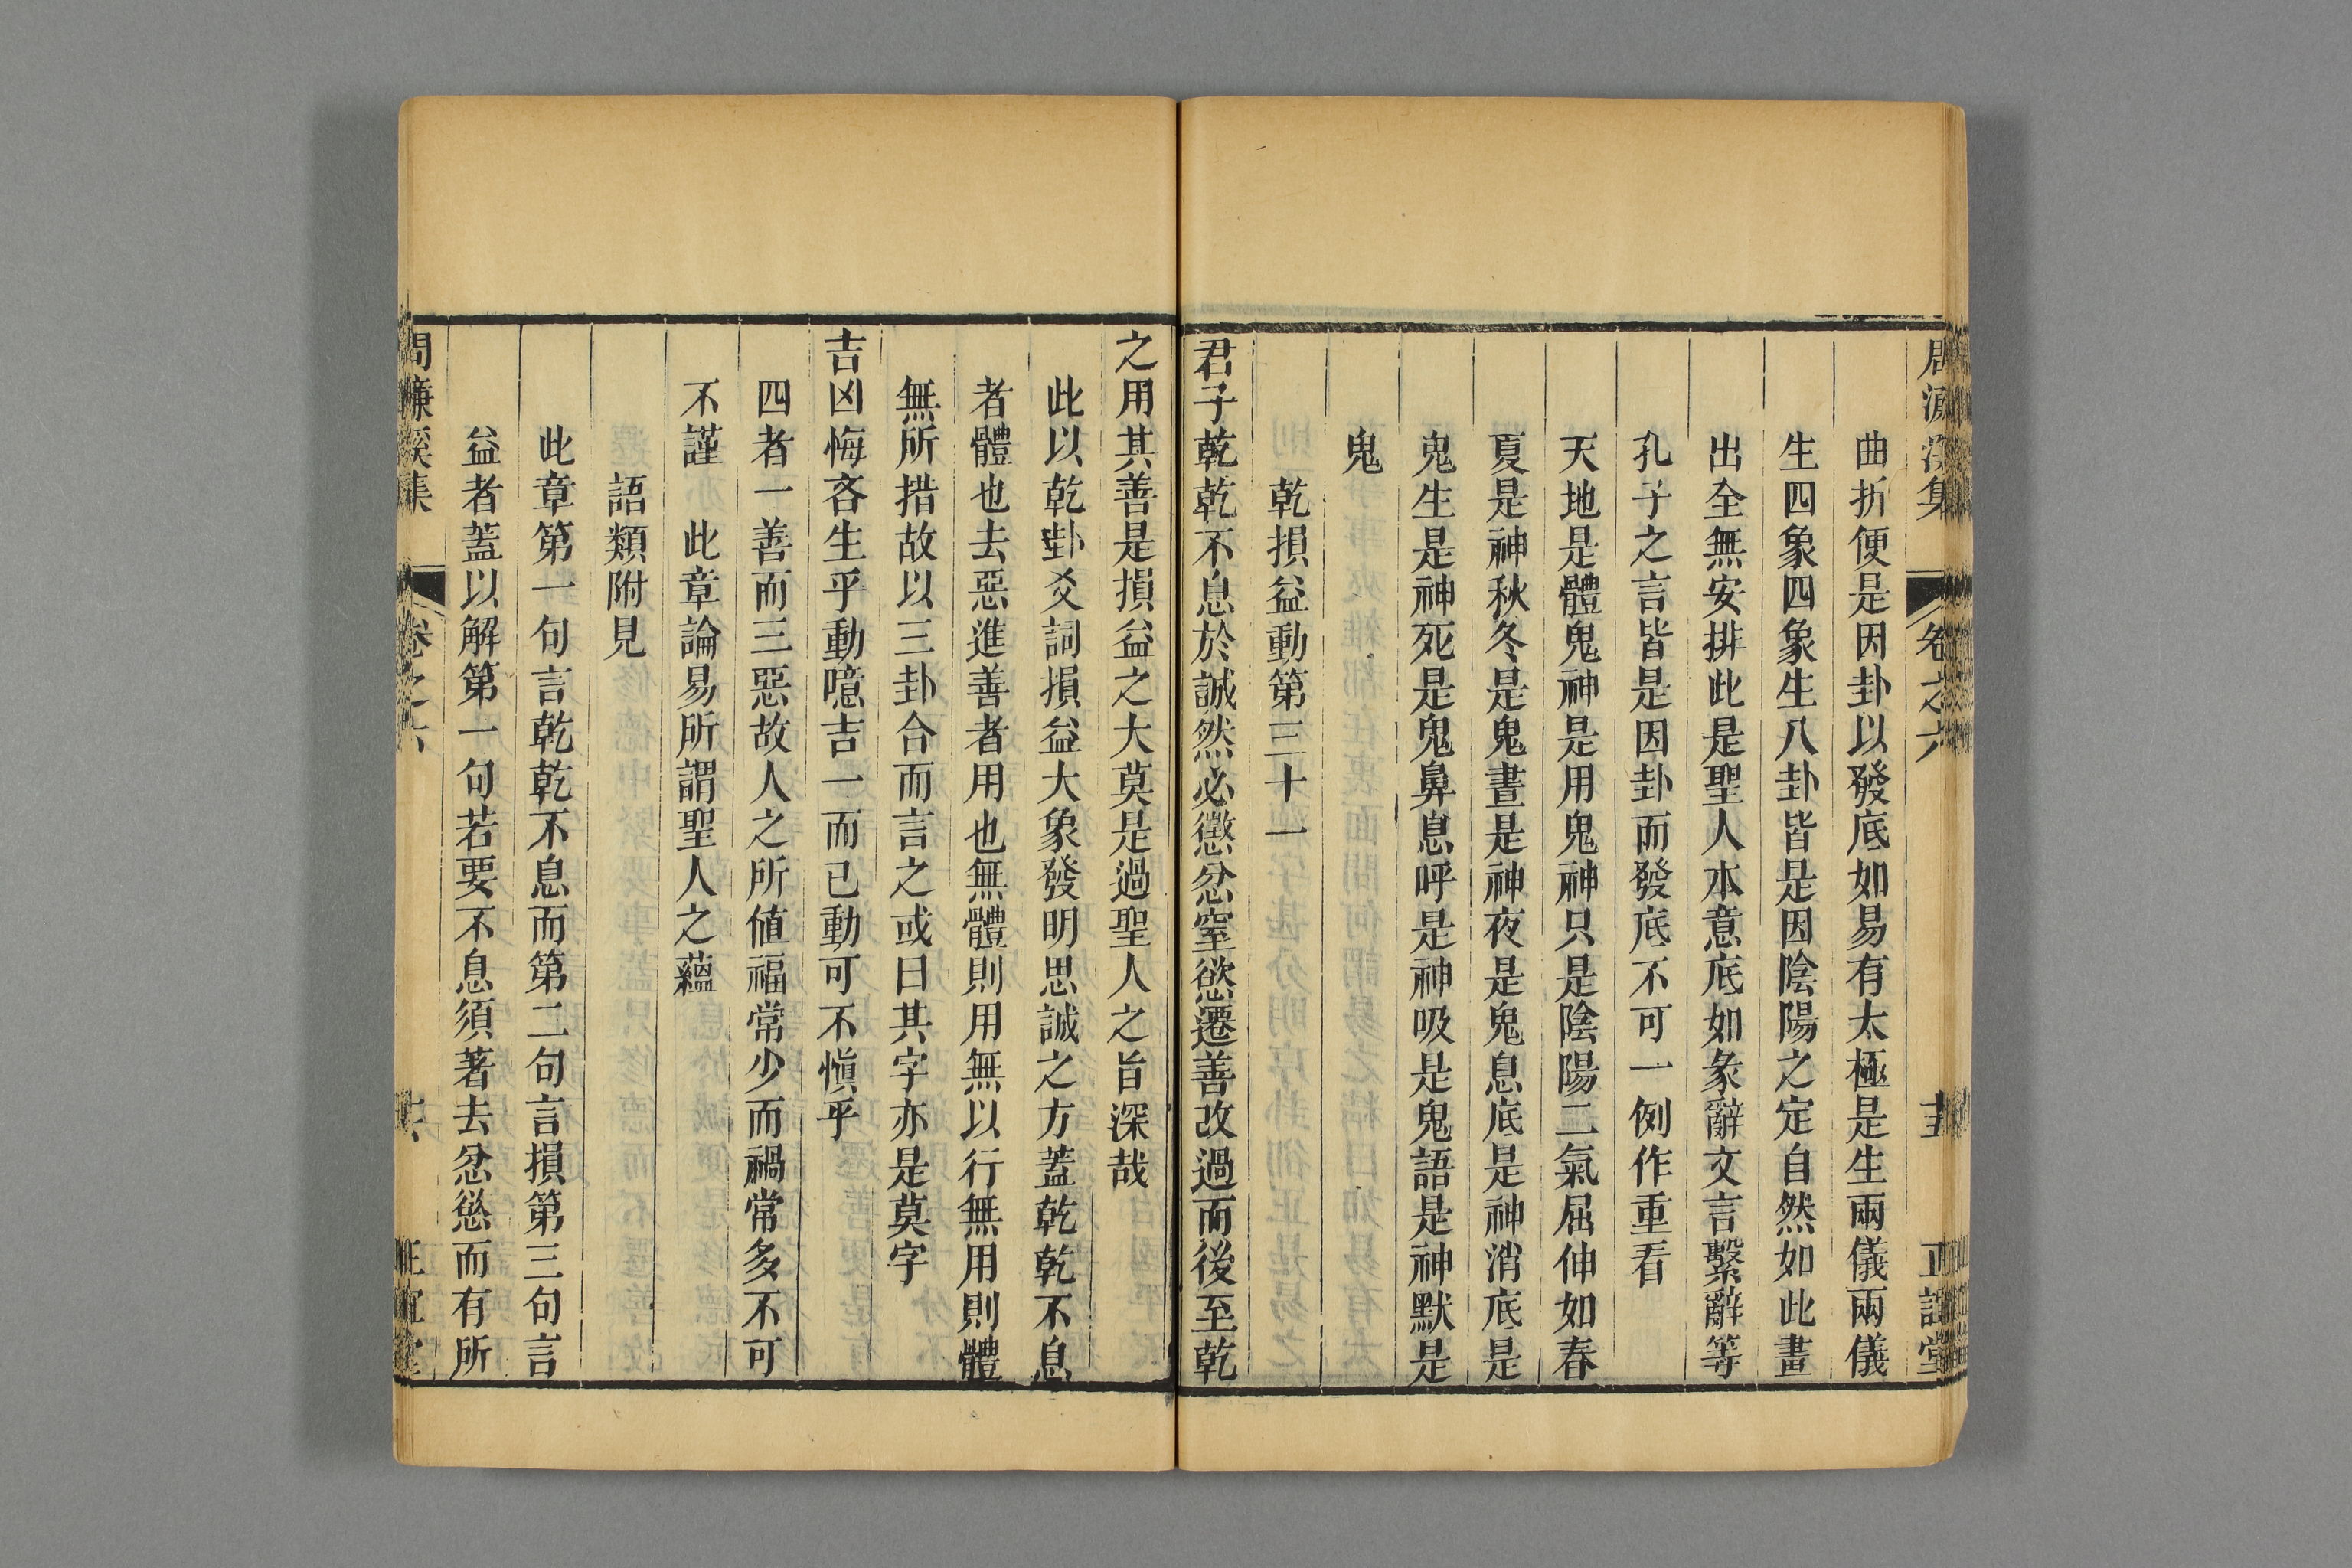 周濂溪集 卷之六 十五 正誼堂
曲折便是因卦以發底如易有太極是生兩儀兩儀
生四象四象生八卦皆是因陰陽之定自然如此畫
出全無安排此是聖人本意底如彖辭文言繫辭等
孔子之言皆是因卦而發底不可一例作重看
天地是體鬼神是用鬼神只是陰陽二氣屈伸如春
夏是神秋冬是鬼晝是神夜是鬼息底是神消底是
鬼生是神死是鬼鼻息呼是神吸是鬼語是神默是
鬼
乾損益動第三十一
君子乾乾不息於誠然必懲忿窒慾遷善改過而後至乾
之用其善是損益之大莫是過聖人之旨深哉
此以乾卦爻詞損益大象發明思誠之方蓋乾乾不息
者體也去惡進善者用也無體則用無以行無用則體
無所措故以三卦合而言之或曰其字亦是莫字
吉凶悔吝生乎動噫吉一而已動可不慎乎
四者一善而三惡故人之所值福常少而禍常多不可
不謹 此章論易所謂聖人之蘊
語類附見
此章第一句言乾乾不息而第二句言損第三句言
益者蓋以解第一句若要不息須著去忿慾而有所
周濂溪集 卷之六 十六 正誼堂